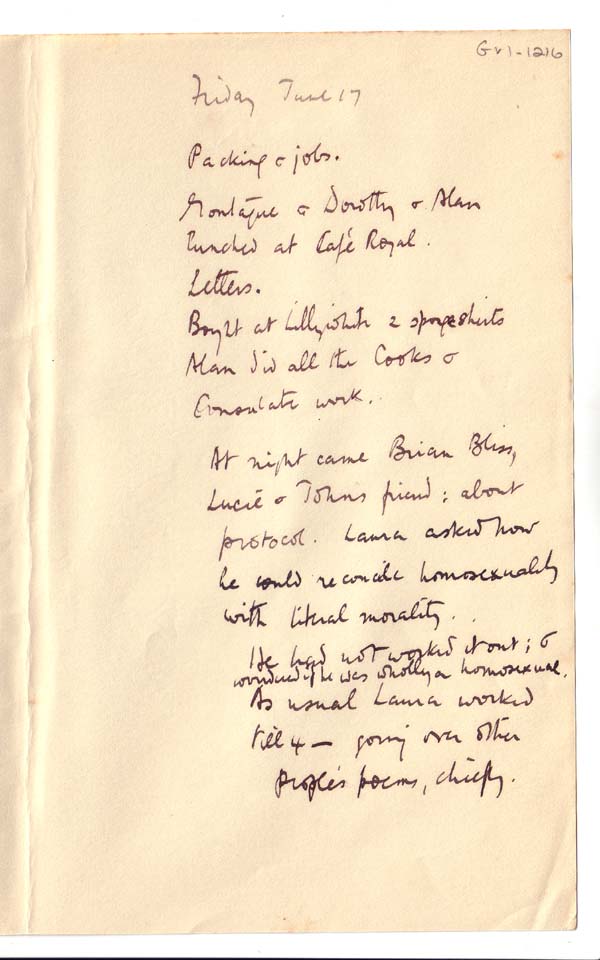 Gv1-1216
Friday June 17
Packing & jobs.
Montague & Dorothy & Alan
lunched at Café Royal.
Letters.
Bought at Lillywhite 2 sponge shirts
Alan did all the Cooks &
Consulate work.
At night came Brian Bliss,
Lucie & Johns friend: about
protocol. Laura asked how
he could reconcile homosexuality
with literal morality.
He had not worked it out; &
wondered if he was wholly a homosexual.
As usual Laura worked
till 4 — going over other
people's poems, chiefly.